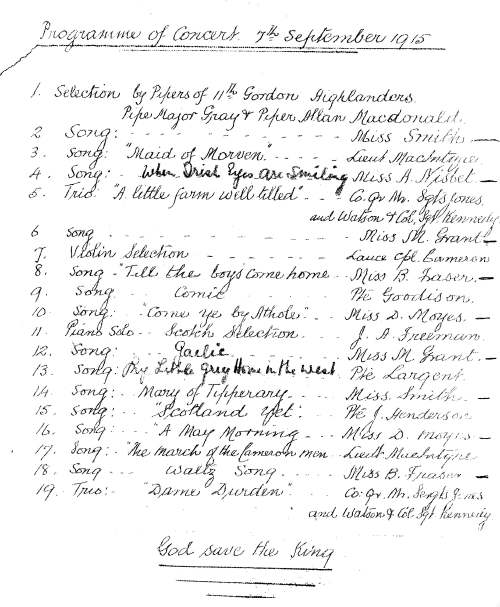 Programme of Concert 7th September 1915
1. Selection by Pipers of 11th Gordon Highlanders.
Pipe Major Gray & Piper Allan Macdonald.
2 Song: - - - - - - - - Miss Smith -
3. Song: "Maid of Morven" - - - - Lieut MacIntyre
4. Song: - When Irish Eyes are Smiling Miss A Nisbet -
5. Trio: "A little farm well tilled" - - Co. Qr Mr. Sgts Jones,
and Watson & Col. Sgt Kennedy
6 Song - - - - - - - - Miss M. Grant -
7. Violin Selection - - - - - - Lance Cpl. Cameron
8. Song - "Till the boys come home - - Miss B. Fraser. -
9. Song Comic - - - Pte Goodison.
10. Song: "Come ye by Athole" - - Miss D. Moyes. -
11. Piano Solo - - Scotch Selection. J. A. Freeman.
12. Song: - Gaelic - - - - Miss M. Grant. -
13. Song: My Little Grey Home in the West Pte Largent.
14. Song: - - Mary of Tipperary. - - - Miss. Smith. -
15. Song: - - "Scotland Yet". - - Pte J. Henderson
16. Song. - - "A May Morning - - - Miss D. Moyes -
17. Song: "The march of the Cameron men - Lieut MacIntyre
18. Song - - - Waltz Song. - - - Miss B. Fraser -
19. Trio: - - "Dame Durden" - - Co: Qr. Mr. Sergts Jones
and Watson & Col. Sgt Kennedy
God save the King